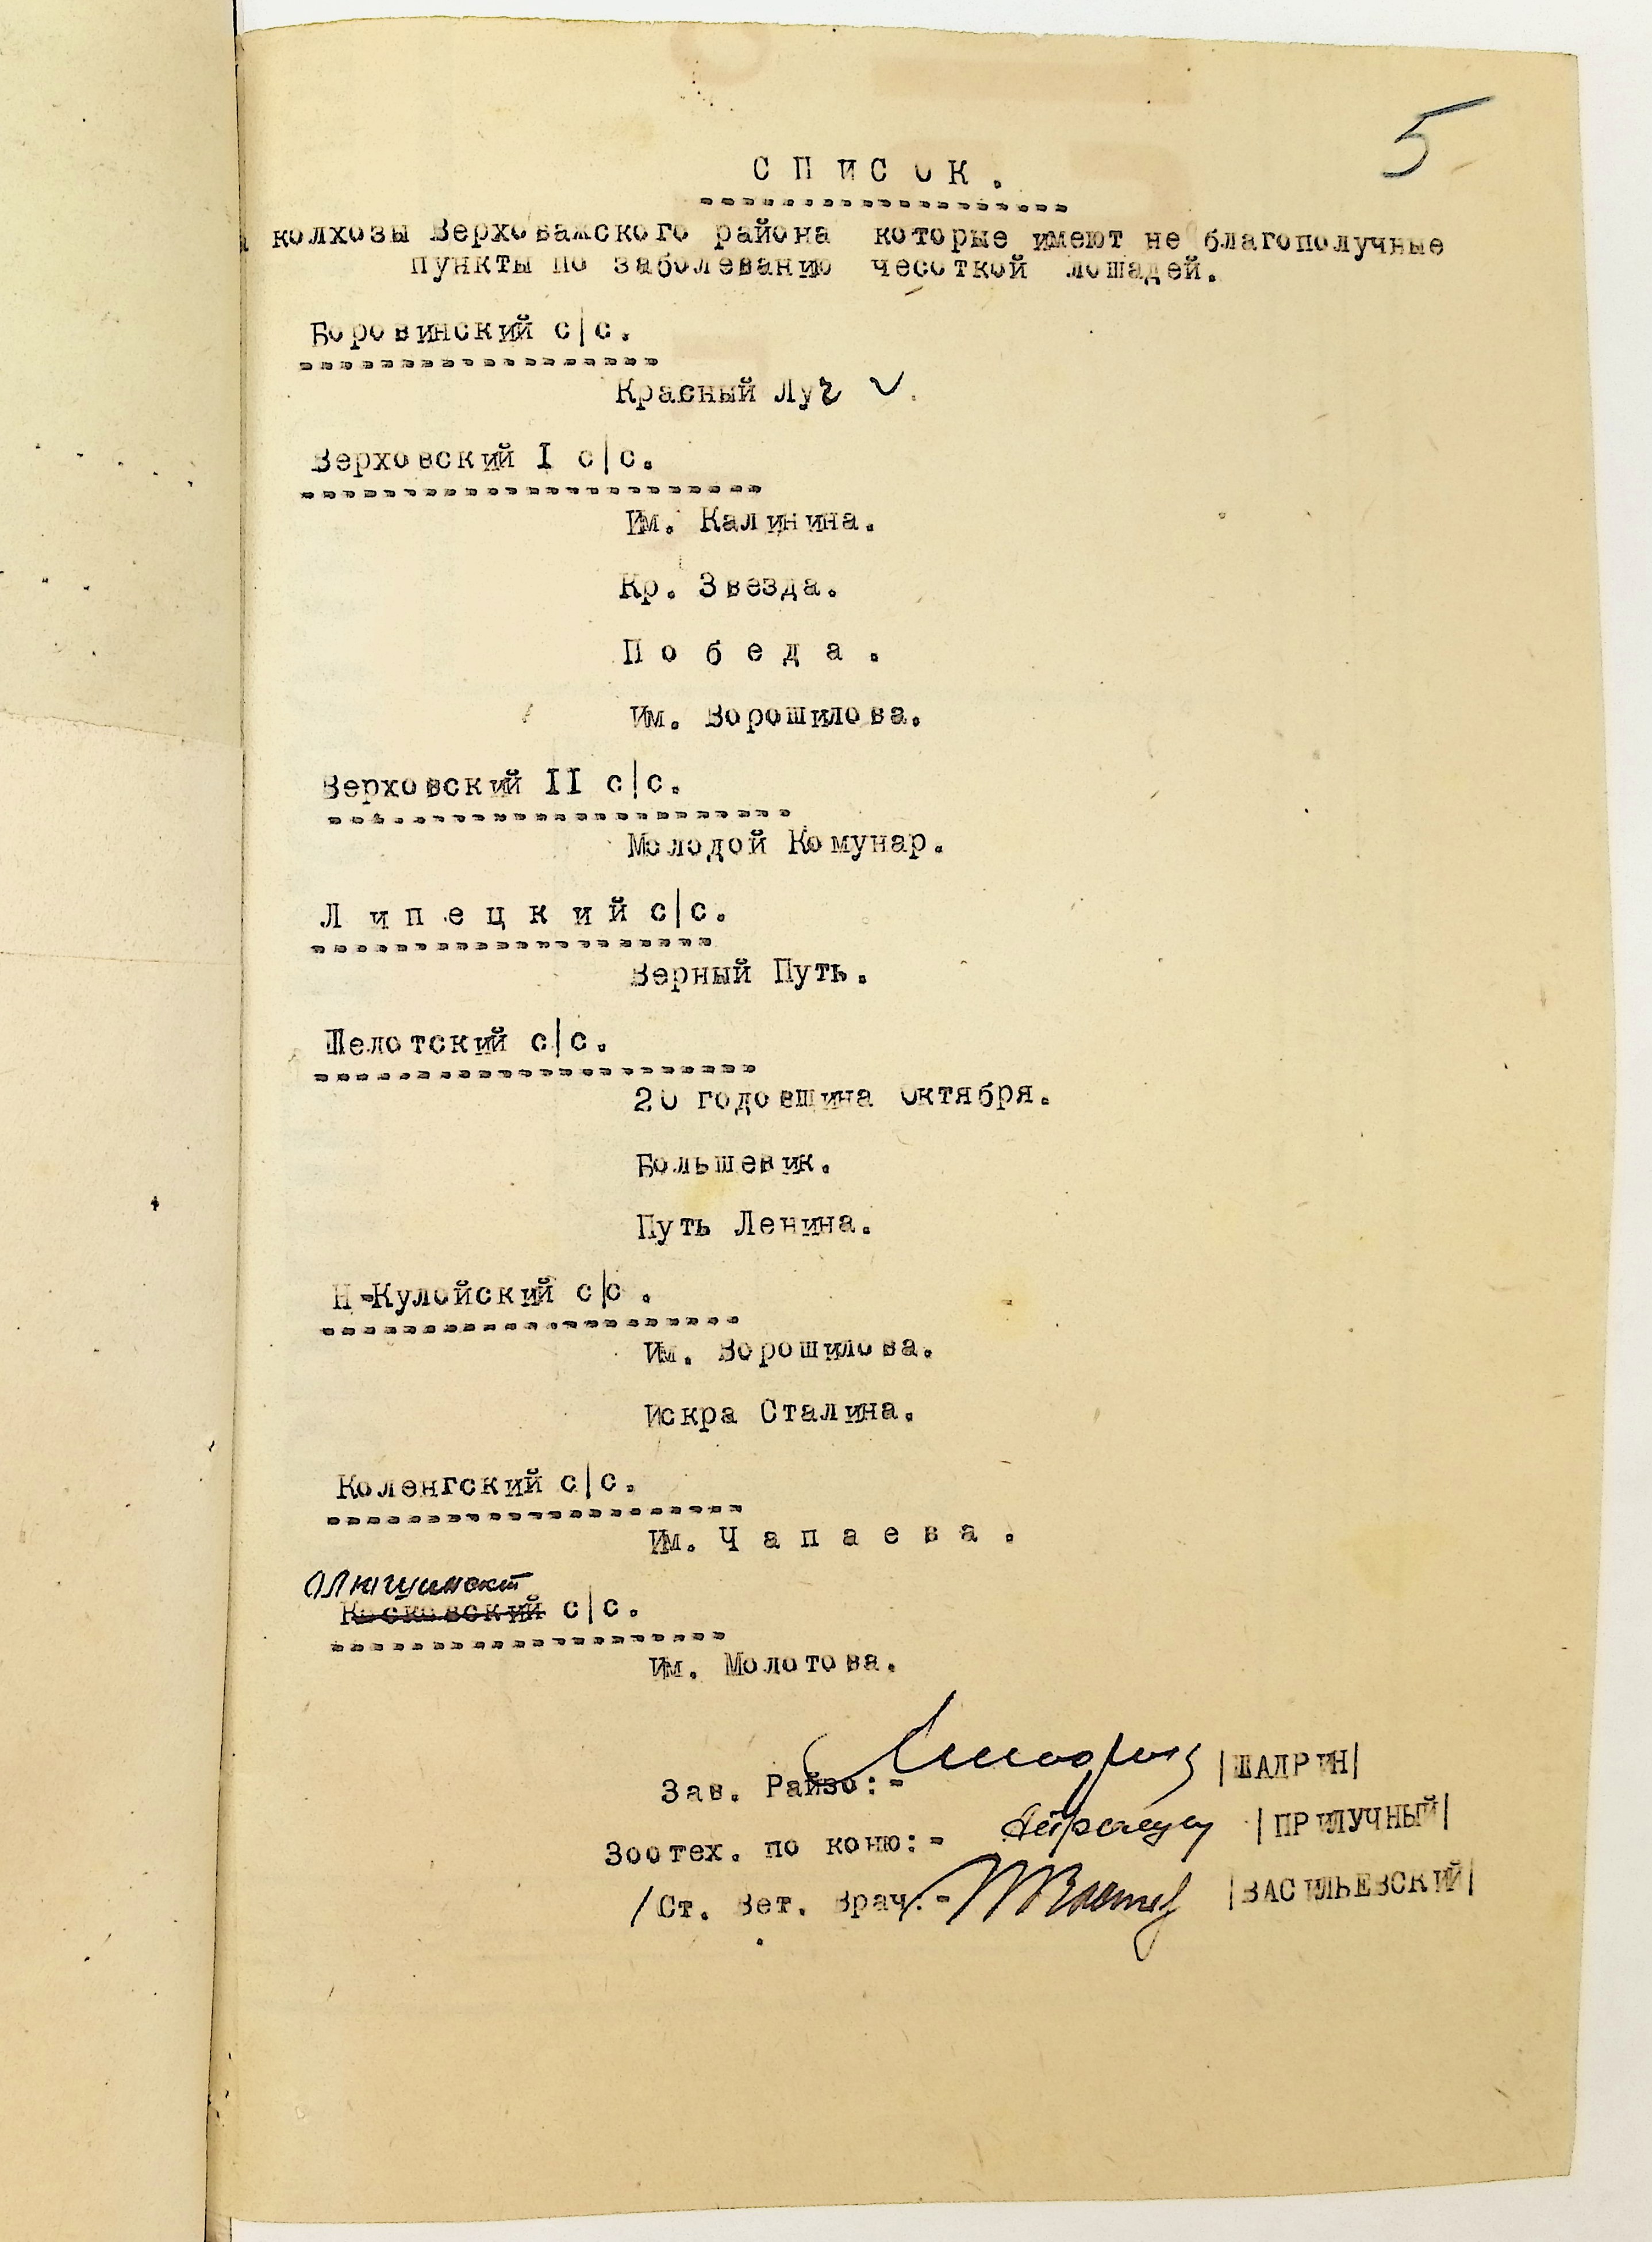 5
С П И С О К .
колхозы Верховажского района которые имеют не благополучные
пункты по заболеванию чесоткой лошадей.
Боровинский с|с.
Красный Луч
Верховский I с|с.
Им. Калинина.
Кр. Звезда.
П о б е д а .
Им. Ворошилова.
Верховский II с|с.
Молодой Комунар.
Л и п е ц к и й с|с.
Верный Путь.
Шелотский с|с.
20 годовщина Октября.
Большевик.
Путь Ленина.
Н-Кулойский с|с .
Им. Ворошилова.
Искра Сталина.
Коленгский с|с.
Им. Ч а п а е в а .
Косковский с|с.
Им. Молотова.
Зав. Райзо:- |ШАДРИН|
Зоотех. по коню:- |ПРИЛУЧНЫЙ|
/Ст. Вет. Врач:- |ВАСИЛЬЕВСКИЙ|